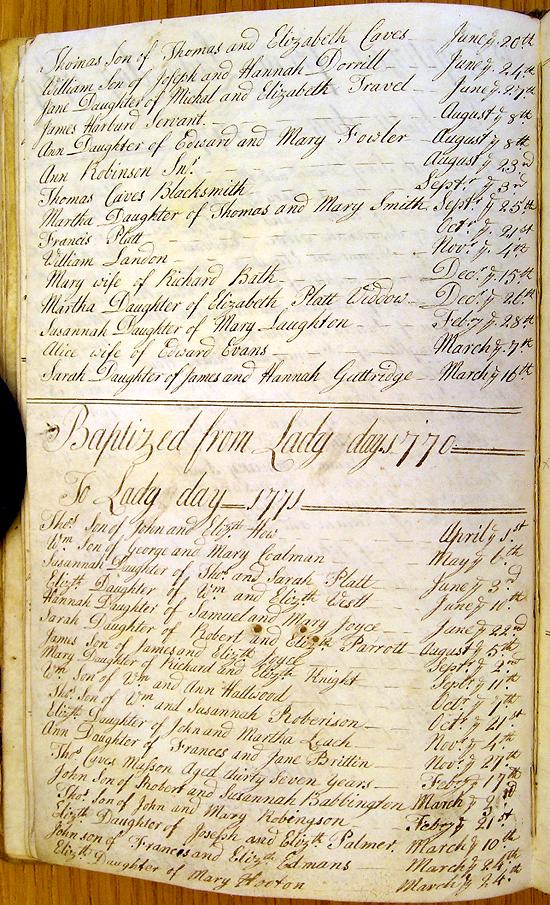 Thomas Son of Thomas and Elizabeth Caves June ye 20th
William Son of Joseph and Hannah Dorrill June ye 24th
Jane Daughter of Michal and Elizabeth Travel June ye 27th
James Harburd Servant August ye 8th
Ann Daughter of Edward and Mary Fowler August ye 8th
Ann Robinson Snr August ye 23rd
Thomas Caves Blacksmith Septr ye 3rd
Martha Daughter of Thomas and Mary Smith Septr ye 25th
Francis Platt Octr ye 21st
William Landon Novr ye 4th
Mary wife of Richard Bath Decr ye 15th
Martha Daughter of Elizabeth Platt Widdow Decr ye 26th
Susannah Daughter of Mary Laughton Febry ye 28th
Alice wife of Edward Evans March ye 7th
Sarah Daughter of James and Hannah Guttridge March ye 16th
Baptized from Lady day 1770
To Lady day 1771
Thos Son of John and Elizth How April ye 1st
Wm Son of George and Mary Coalman May ye 6th
Susannah Daughter of Thos and Sarah Platt June ye 3rd
Elizth Daughter of Wm and Elizth Westt June ye 10th
Hannah Daughter of Samuel and Mary Joyce June ye 22nd
Sarah Daughter of Robert and Elizth Parrott August ye 5th
James Son of James and Elizth Joyce Septr ye 2nd
Mary Daughter of Richard and Elizth Knight Septr ye 11th
Wm Son of Wm and Ann Hallwood Octr ye 1th
Thos Son of Wm and Susannah Roberison Octr ye 21st
Elizth Daughter of John and Martha Leach Novr ye 4th
Ann Daughter of Frances and Jane Brittin Novr ye 27th
Thos Caves Masson Aged thirty seven years Febry ye 17th
John Son of Robert and Susannah Babbington March ye
Thos Son of John and Mary Robengson Febry ye 21st
Elizth Daughter of Joseph and Elizth Palmer March ye 10th
John son of Francis and Elizth Edmans March ye 24th
Elizth Daughter of Mary Hooton March ye 24th